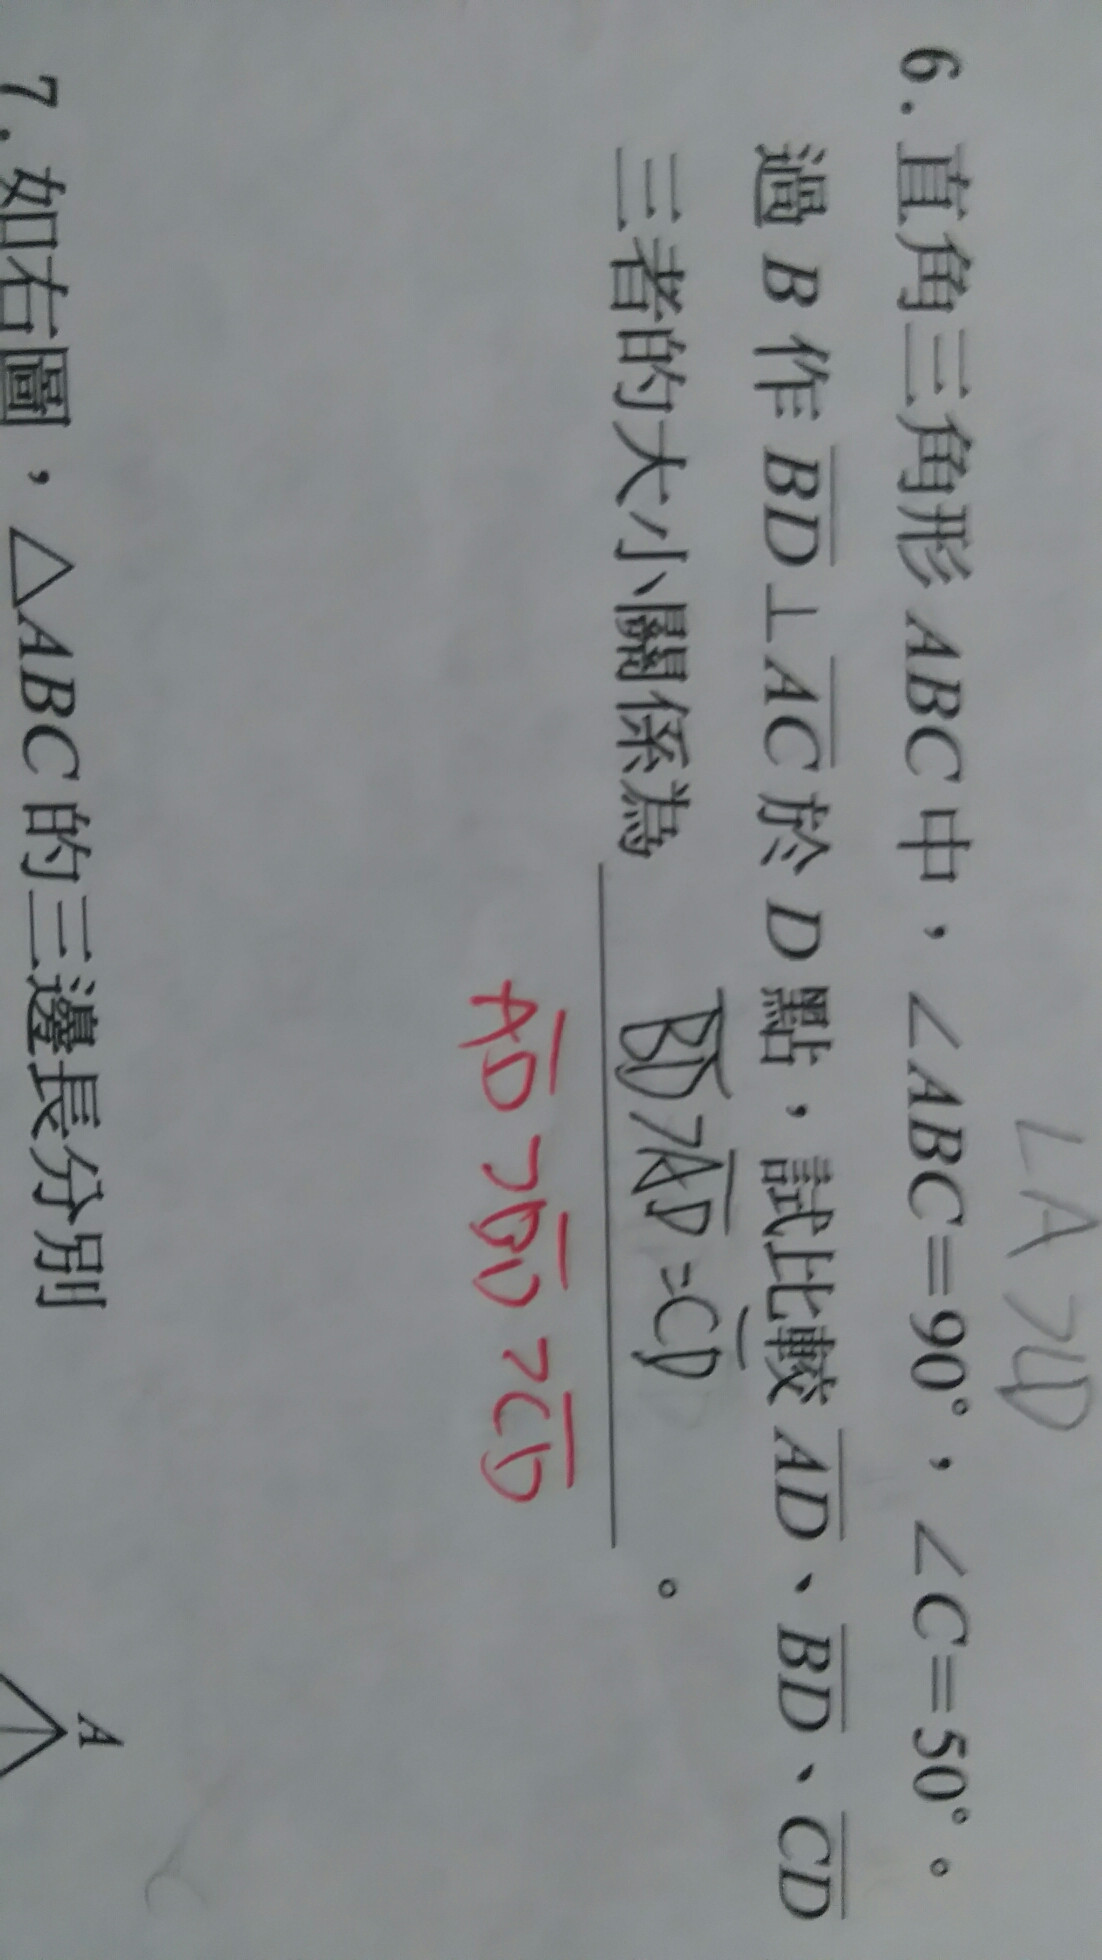 6.直角三角形 ABC 中，∠ABC=90°，∠C=50°。
過 B 作 BD⊥AC 於 D 點，試比較 AD、BD、CD
三者的大小關係為 BD>AD=CD 。
AD>BD>CD
7.如右圖，△ABC 的三邊長分別
A